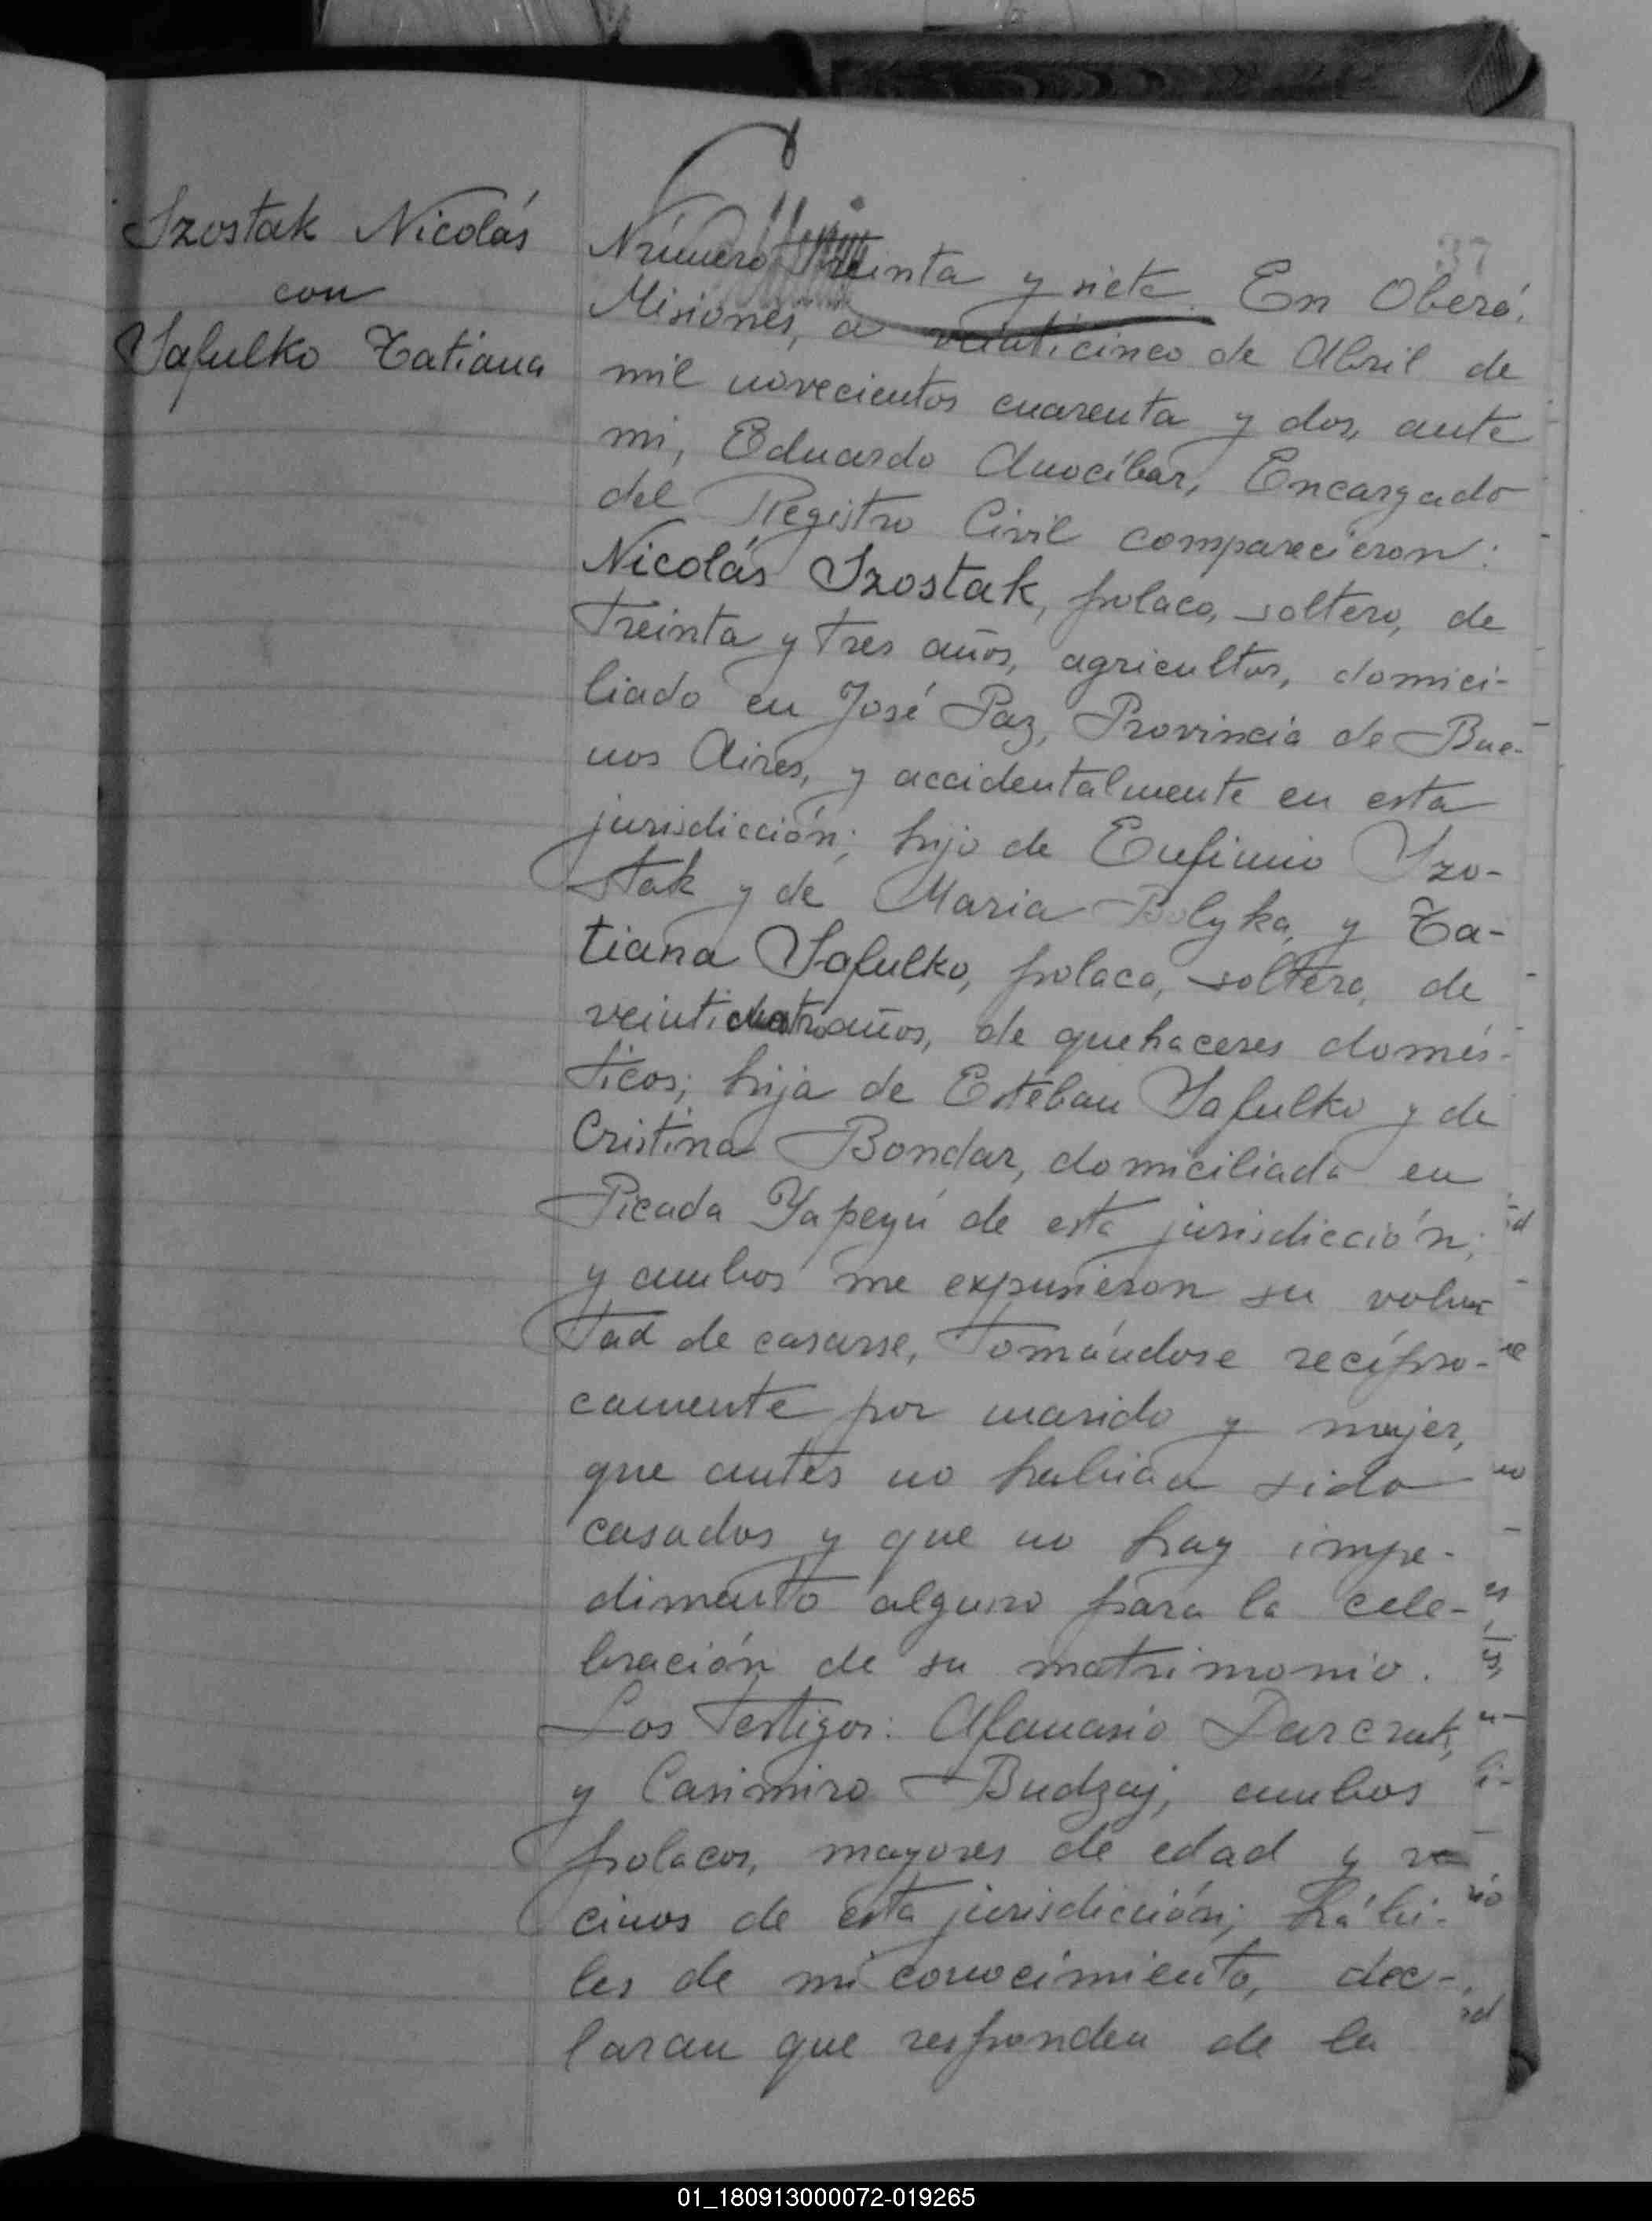 Szostak Nicolás
con
Safulko Tatiana
37
Número treinta y siete. En Oberá,
Misiones, a veinticinco de Abril de
mil novecientos cuarenta y dos, ante
mi, Eduardo Anocíbar, Encargado
del Registro Civil comparecieron:
Nicolás Szostak, polaco, soltero, de
treinta y tres años, agricultor, domici-
liado en José Paz, Provincia de Bue-
nos Aires, y accidentalmente en esta
jurisdicción; hijo de Eufimio Szo-
stak y de Maria Bolyka, y Ta-
tiana Safulko, polaca, soltera, de
veinticuatro años, de quehaceres domés-
ticos; hija de Esteban Safulko y de
Cristina Bondar, domiciliada en
Picada Yapeyú de esta jurisdicción;
y ambos me expusieron su volun
tad de casarse, tomándose recípro-
camente por marido y mujer,
que antes no habian sido
casados y que no hay impe-
dimento alguno para la cele-
bración de su matrimonio.
Los testigos: Afanasio
y Casimiro Budzaj, ambos
polacos, mayores de edad y ve
cinos de esta jurisdicción; hábi-
les de mi conocimiento, dec-
laran que responden de la
01_180913000072-019265